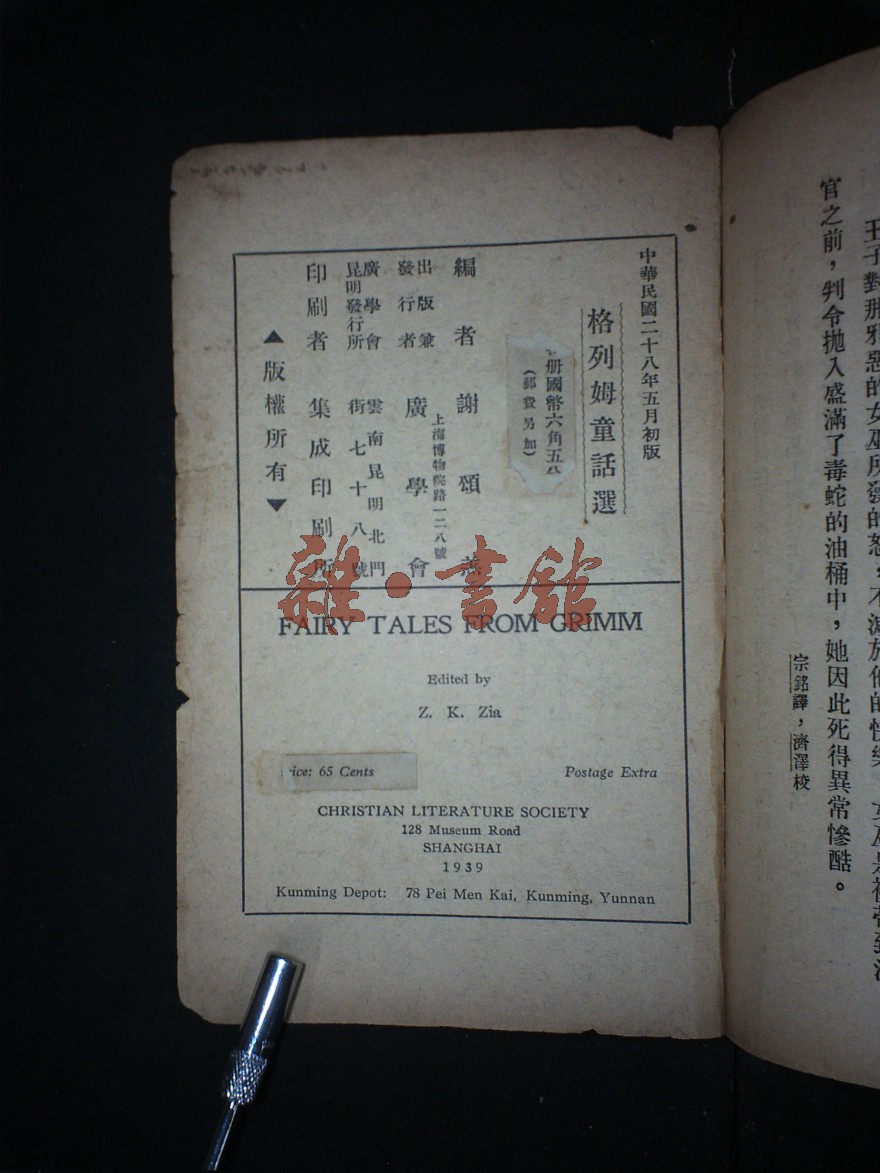 王子對那邪惡的女巫所發的怒，不減於他的快樂
官之前，判令拋入盛滿了毒蛇的油桶中，她因此死得異常慘酷。
宗銘譯，濟澤校
中華民國二十八年五月初版
格列姆童話選
册國幣六角五分
（郵費另加）
編者 謝頌羔
出版兼發行者 廣學會
上海博物院路一二八號
廣學會昆明發行所 雲南昆明北門街七十八號
印刷者 集成印刷所
▲版權所有▼
雜·書館
FAIRY TALES FROM GRIMM
Edited by
Z. K. Zia
rice: 65 Cents Postage Extra
CHRISTIAN LITERATURE SOCIETY
128 Museum Road
SHANGHAI
1939
Kunming Depot: 78 Pei Men Kai, Kunming, Yunnan